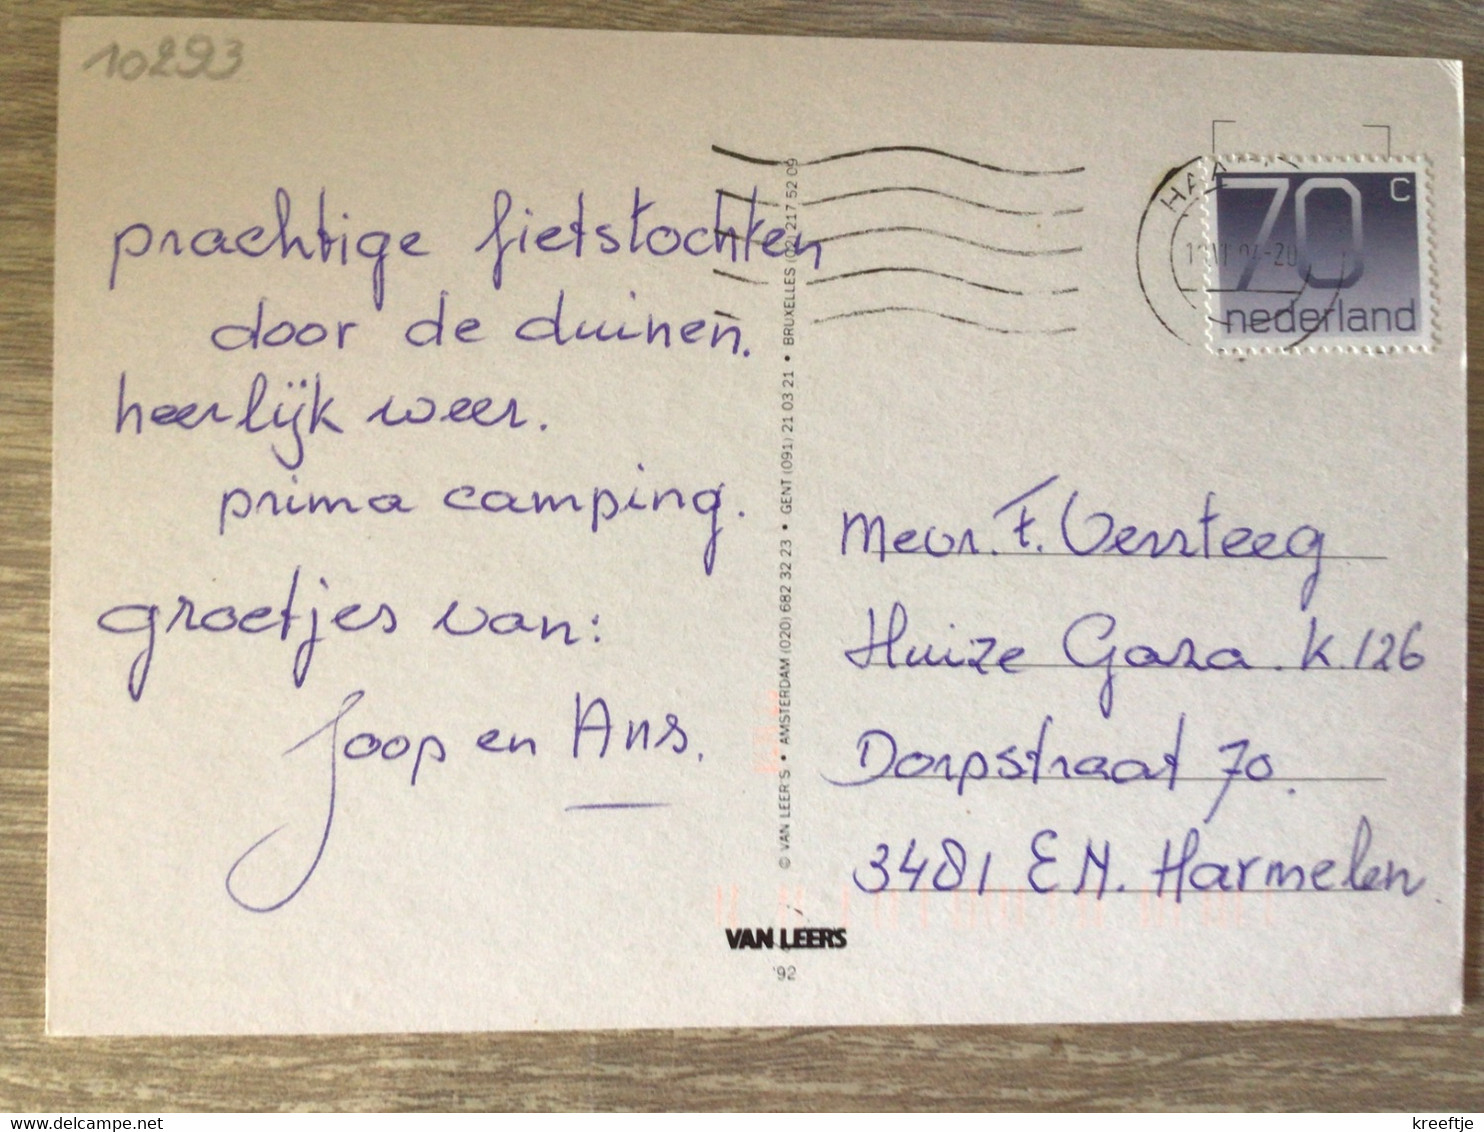 10293
prachtige fietstochten
door de duinen.
heerlijk weer.
prima camping.
groetjes van:
Joop en Ans.
© VAN LEER'S • AMSTERDAM (020) 682 32 23 • GENT (091) 21 03 21 • BRUXELLES (02) 217 52 09
VAN LEER'S
'92
70 c
nederland
Mevr. F. Versteeg
Huize Gaza. K. 126
Dorpstraat 70.
3481 EN. Harmelen
kreeftje